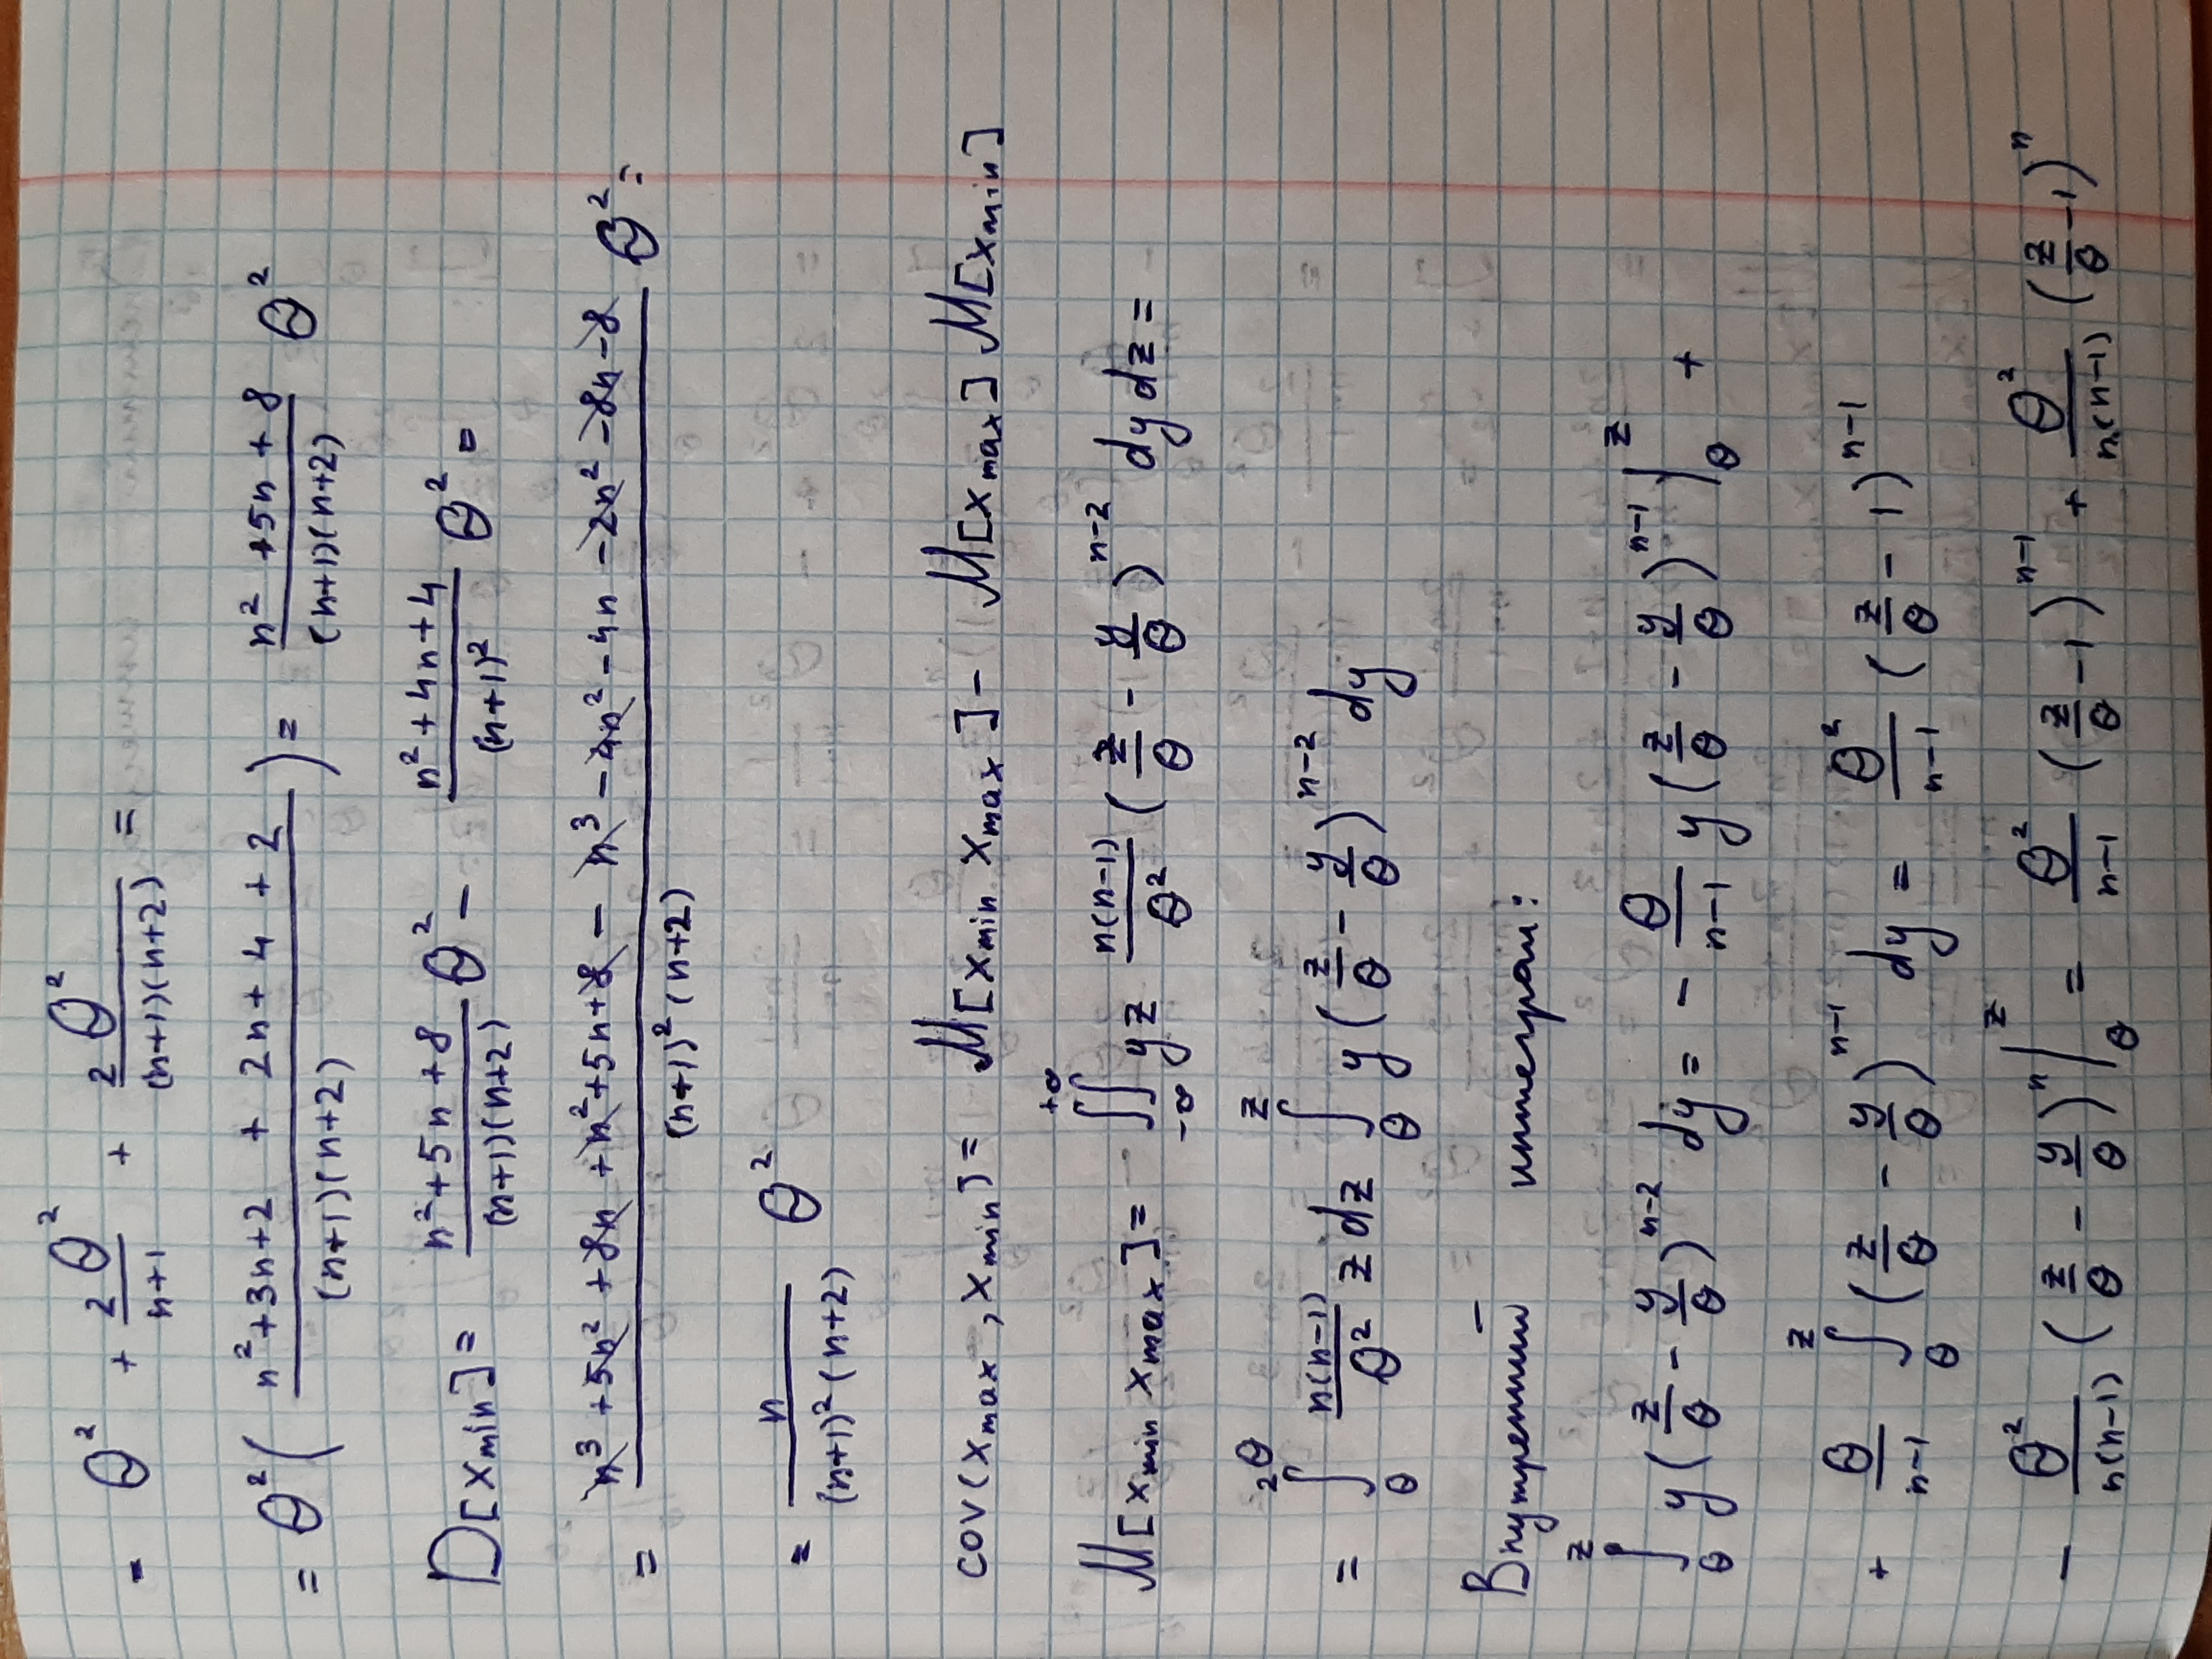 = θ² + 2θ²/(n+1) + 2θ²/((n+1)(n+2)) =
= θ² ( (n²+3n+2 + 2n+4+2)/((n+1)(n+2)) ) = (n²+5n+8)/((n+1)(n+2)) θ²
D[xmin] = (n²+5n+8)/((n+1)(n+2)) θ² - (n²+4n+4)/(n+1)² θ² =
= (n³+5n²+8n+n²+5n+8-n³-4n²-4n-2n²-8n-8)/((n+1)²(n+2)) θ² =
= n/((n+1)²(n+2)) θ²
cov(xmax, xmin) = M[xmin xmax] - M[xmax] M[xmin]
M[xmin xmax] = ∬_{-∞}^{+∞} yz n(n-1)/θ² (z/θ - y/θ)^{n-2} dy dz =
= ∫_θ^{2θ} n(n-1)/θ² z dz ∫_θ^z y(z/θ - y/θ)^{n-2} dy
Внутренний интеграл:
∫_θ^z y(z/θ - y/θ)^{n-2} dy = - θ/(n-1) y(z/θ - y/θ)^{n-1} |_θ^z +
+ θ/(n-1) ∫_θ^z (z/θ - y/θ)^{n-1} dy = θ²/(n-1) (z/θ - 1)^{n-1}
- θ²/(n(n-1)) (z/θ - y/θ)^n |_θ^z = θ²/(n-1) (z/θ - 1)^{n-1} + θ²/(n(n-1)) (z/θ - 1)^n